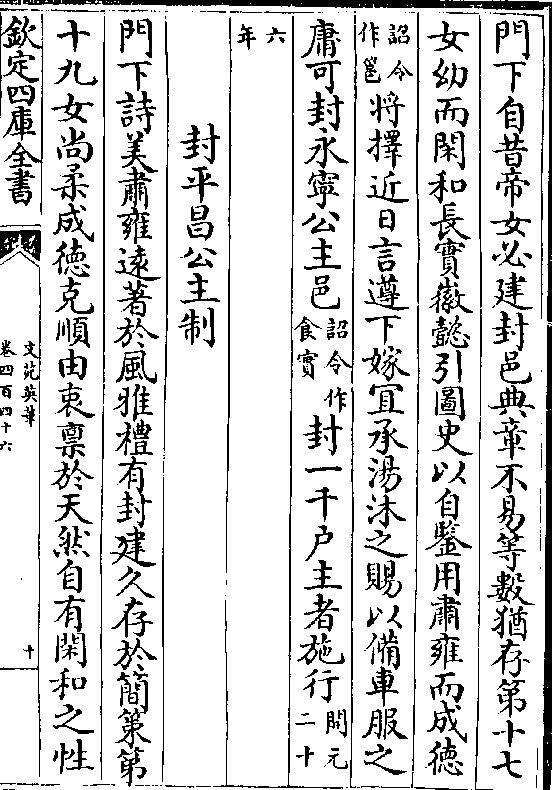 門下自昔帝女必建封邑典章不易等數猶存第十七
女幼而閑和長實徽懿引圖史以自鑒用肅雍而成德
詔令作邕將擇近日言遵下嫁宜承湯沐之賜以備車服之
庸可封永寧公主邑詔令作食實封一千户主者施行開元二十
六年
封平昌公主制
門下詩美肅雍遠著於風雅禮有封建久存於簡策第
十九女尚柔成德克順由衷禀於天然自有閑和之性
欽定四庫全書
文苑英華
卷四百四十六
十